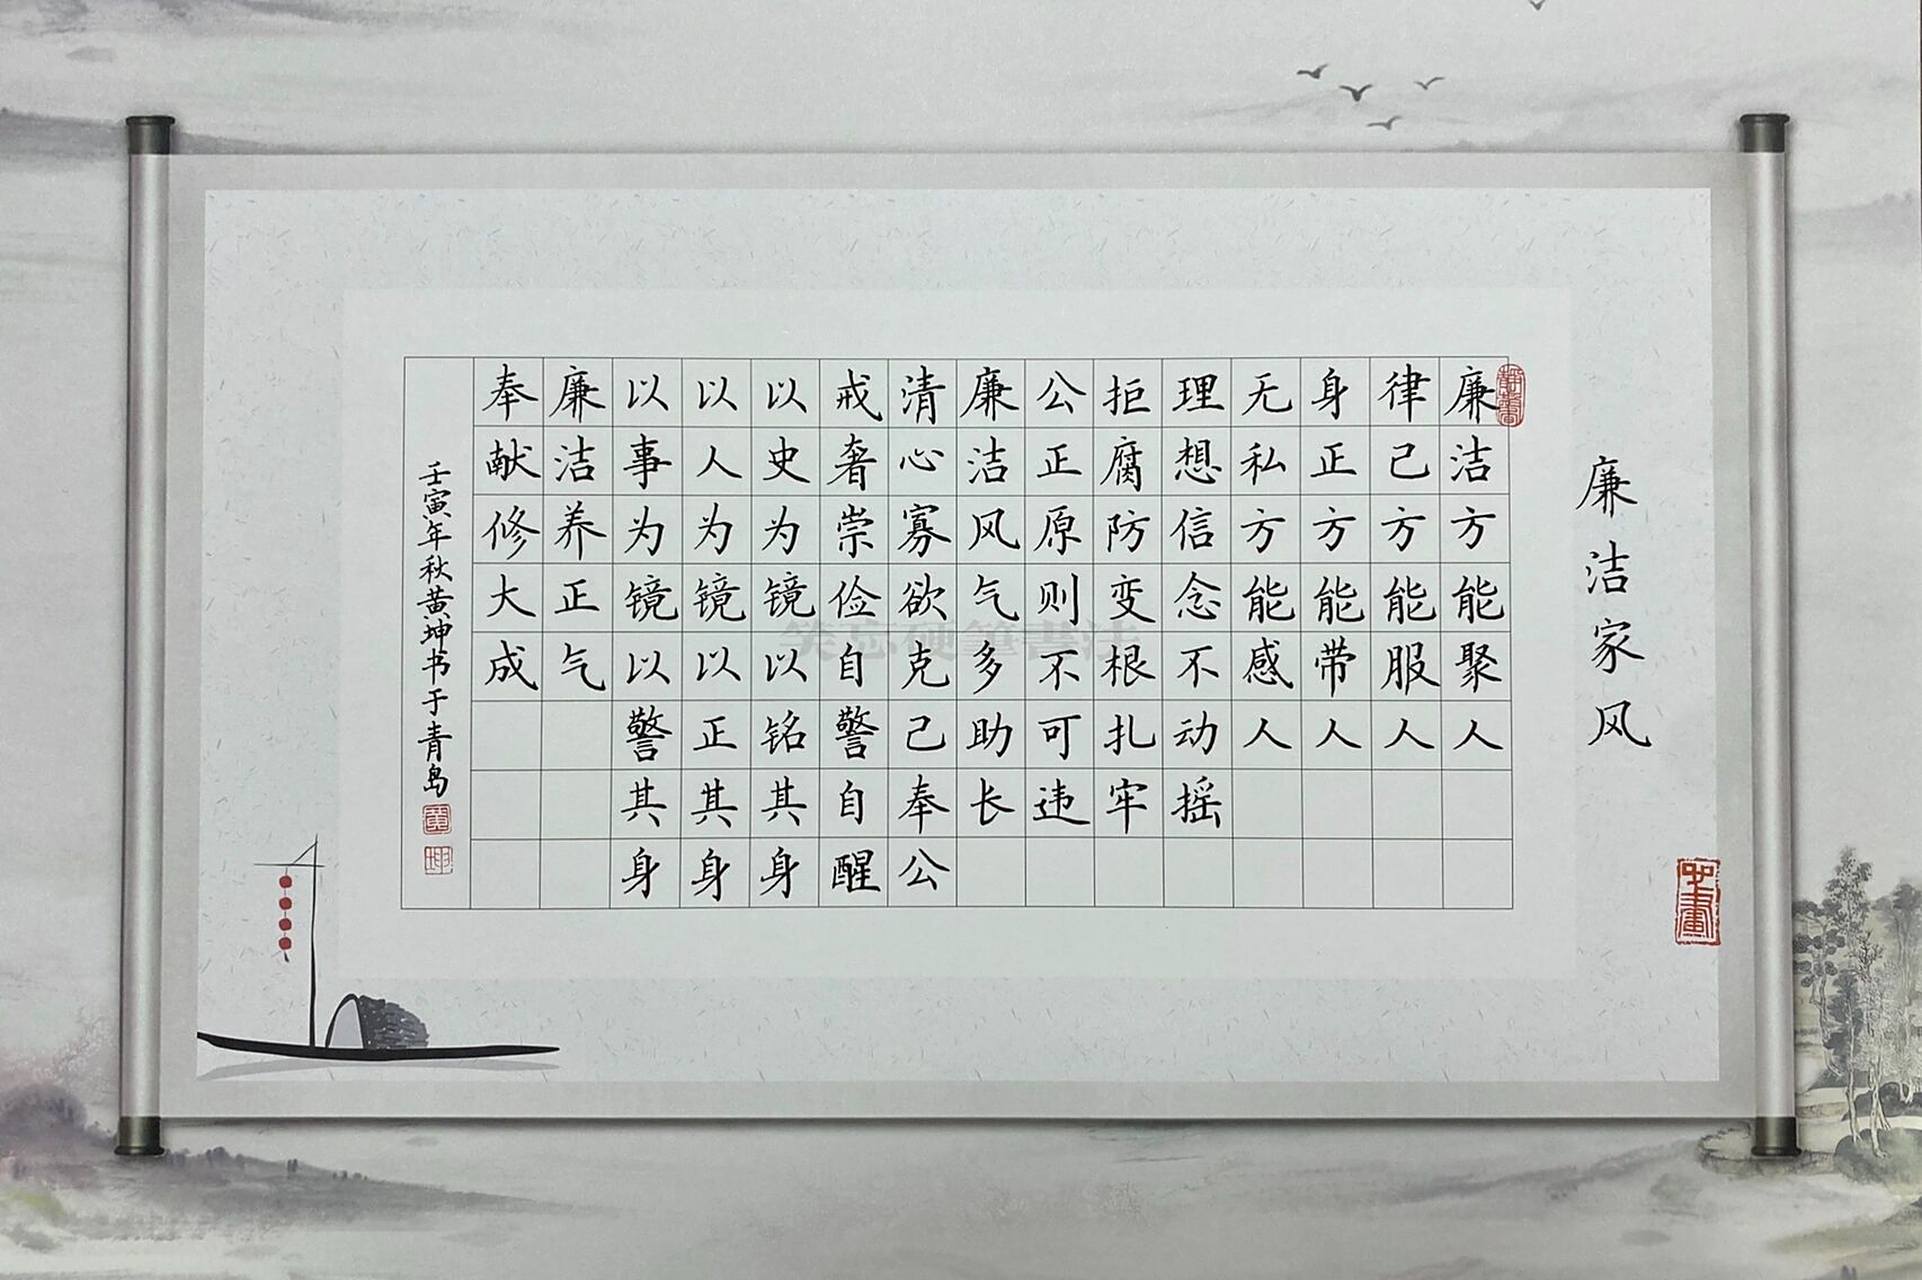 廉洁家风
廉洁方能聚人
律己方能服人
身正方能带人
无私方能感人
理想信念不动摇
拒腐防变根扎牢
公正原则不可违
廉洁风气多助长
清心寡欲克己奉公
戒奢崇俭自警自醒
以史为镜以铭其身
以人为镜以正其身
以事为镜以警其身
廉洁养正气
奉献修大成
壬寅年秋黄坤书于青岛
黄
坤
笑忘硬筆書法